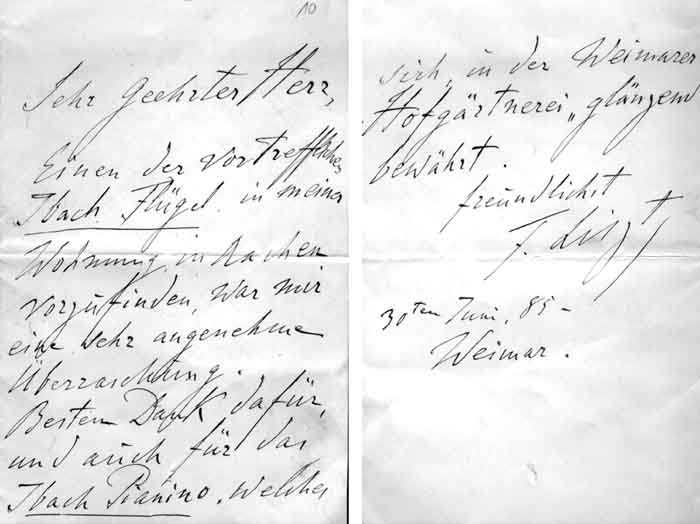 10
Sehr Geehrter Herr,
Einen der vortrefflichen
Ibach Flügel in meiner
Wohnung in Aachen
vorzufinden, war mir
eine sehr angenehme
Überraschung.
Besten Dank dafür,
und auch für das
Ibach Pianino, welches
sich, in der Weimarer
Hofgärtnerei, glänzend
bewährt.
freundlichst
F. Liszt
30ten Juni, 85 -
Weimar.